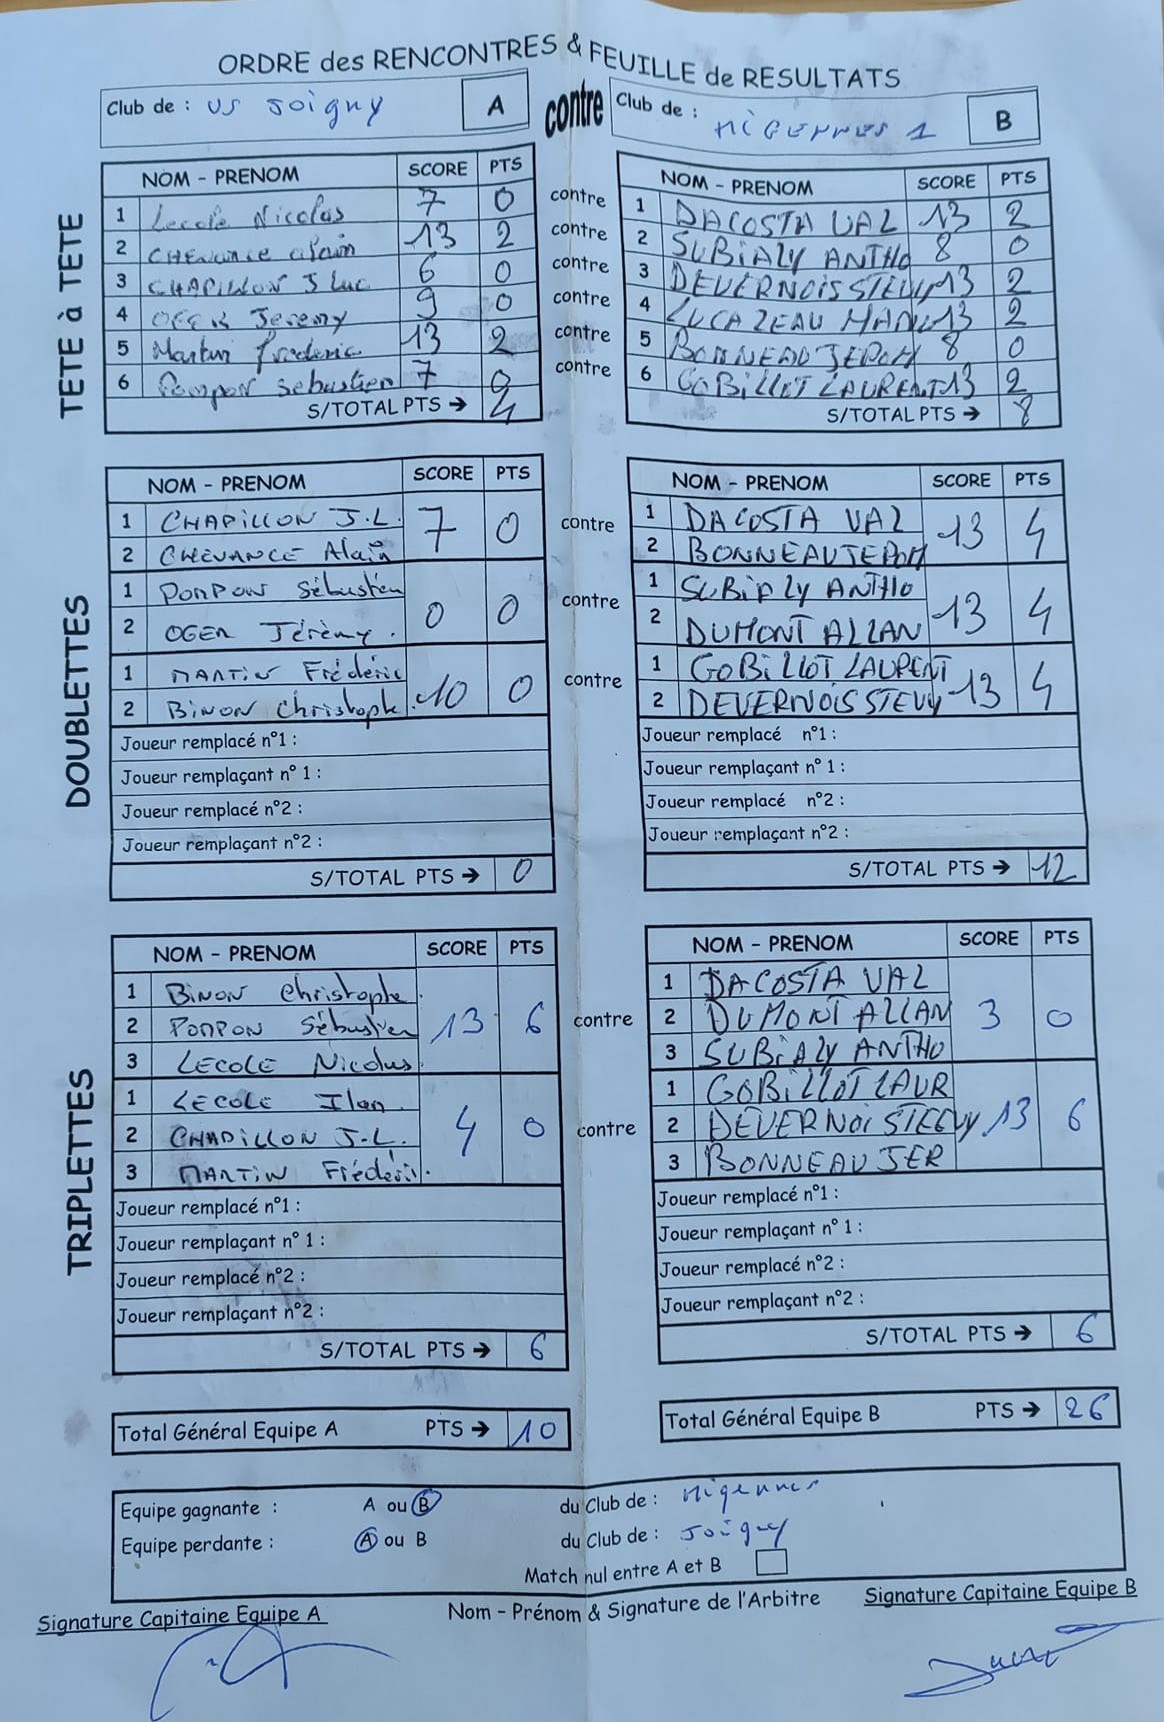 ORDRE des RENCONTRES & FEUILLE de RESULTATS
Club de : US Joigny A contre Club de : MIGENNES 1 B
TETE à TETE
NOM - PRENOM SCORE PTS NOM - PRENOM SCORE PTS
1 Lecole Nicolas 7 0 contre 1 DACOSTA VAL 13 2
2 CHEVANCE alain 13 2 contre 2 SUBIALY ANTHO 8 0
3 CHAPILLON J Luc 6 0 contre 3 DEVERNOIS STEVY 13 2
4 OGER Jeremy 9 0 contre 4 LUCAZEAU MANU 13 2
5 Martin frederic 13 2 contre 5 BONNEAU JEROM 8 0
6 Pompon sebastien 7 0 contre 6 GOBILLOT LAURENT 13 2
S/TOTAL PTS → 4 S/TOTAL PTS → 8
DOUBLETTES
NOM - PRENOM SCORE PTS NOM - PRENOM SCORE PTS
1 CHAPILLON J.L. 7 0 contre 1 DACOSTA VAL 13 4
2 CHEVANCE Alain 2 BONNEAU JEROM
1 POMPON Sébastien 0 0 contre 1 SUBIALY ANTHO 13 4
2 OGER Jérèmy. 2 DUMONT ALLAN
1 MARTIN Frédéric 10 0 contre 1 GOBILLOT LAURENT 13 4
2 BINON Christophe. 2 DEVERNOIS STEVY
Joueur remplacé n°1 : Joueur remplacé n°1 :
Joueur remplaçant n° 1 : Joueur remplaçant n° 1 :
Joueur remplacé n°2 : Joueur remplacé n°2 :
Joueur remplaçant n°2 : Joueur remplaçant n°2 :
S/TOTAL PTS → 0 S/TOTAL PTS → 12
TRIPLETTES
NOM - PRENOM SCORE PTS NOM - PRENOM SCORE PTS
1 BINON Christophe. 1 DACOSTA VAL
2 POMPON Sébastien 13 6 contre 2 DUMONT ALLAN 3 0
3 LECOLE Nicolas. 3 SUBIALY ANTHO
1 LECOLE Ilan. 1 GOBILLOT LAUR
2 CHAPILLON J.L. 4 0 contre 2 DEVERNOI STEEVY 13 6
3 MARTIN Frédéric. 3 BONNEAU JER
Joueur remplacé n°1 : Joueur remplacé n°1 :
Joueur remplaçant n° 1 : Joueur remplaçant n° 1 :
Joueur remplacé n°2 : Joueur remplacé n°2 :
Joueur remplaçant n°2 : Joueur remplaçant n°2 :
S/TOTAL PTS → 6 S/TOTAL PTS → 6
Total Général Equipe A PTS → 10 Total Général Equipe B PTS → 26
Equipe gagnante : A ou B du Club de : Migennes
Equipe perdante : A ou B du Club de : Joigny
Match nul entre A et B
Signature Capitaine Equipe A Nom - Prénom & Signature de l'Arbitre Signature Capitaine Equipe B